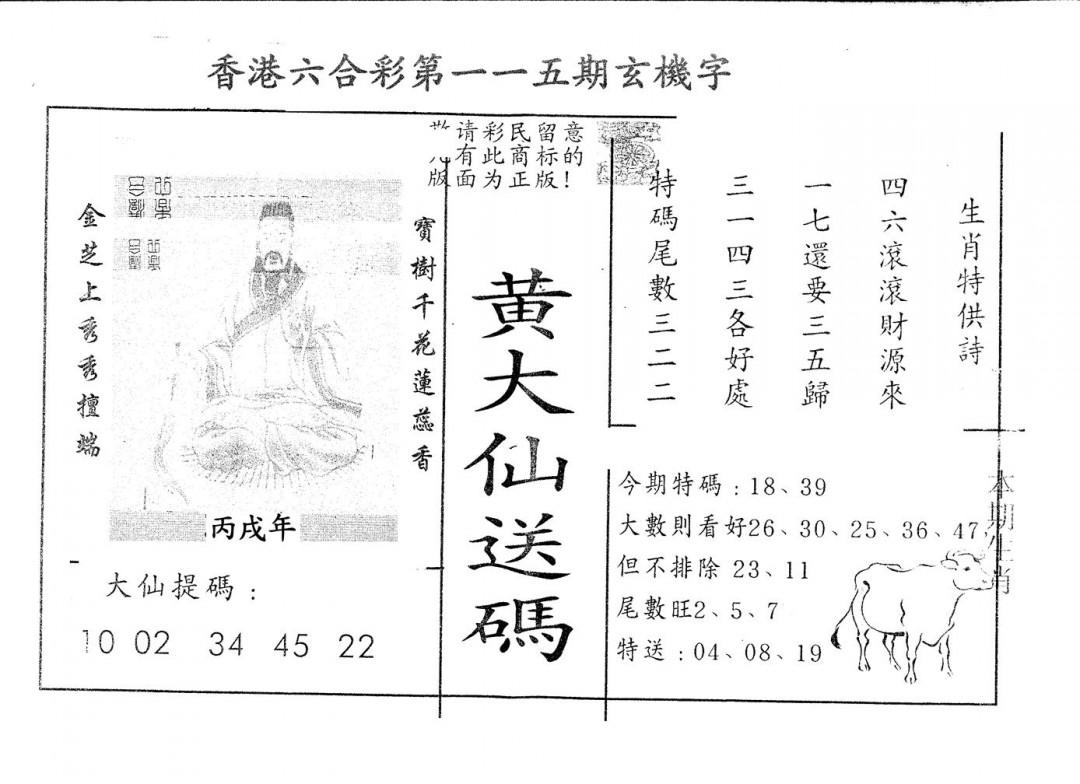 香港六合彩第一一五期玄機字
请彩民留意
有此商标的
版面为正版!
金芝上秀秀擅端
寶樹千花蓮蕊香
丙戌年
大仙提碼:
10 02 34 45 22
黄大仙送碼
生肖特供詩
四六滾滾財源來
一七還要三五歸
三一四三各好處
特碼尾數三二二
今期特碼:18、39
大數則看好26、30、25、36、47,
但不排除 23、11
尾數旺2、5、7
特送:04、08、19
本期生肖